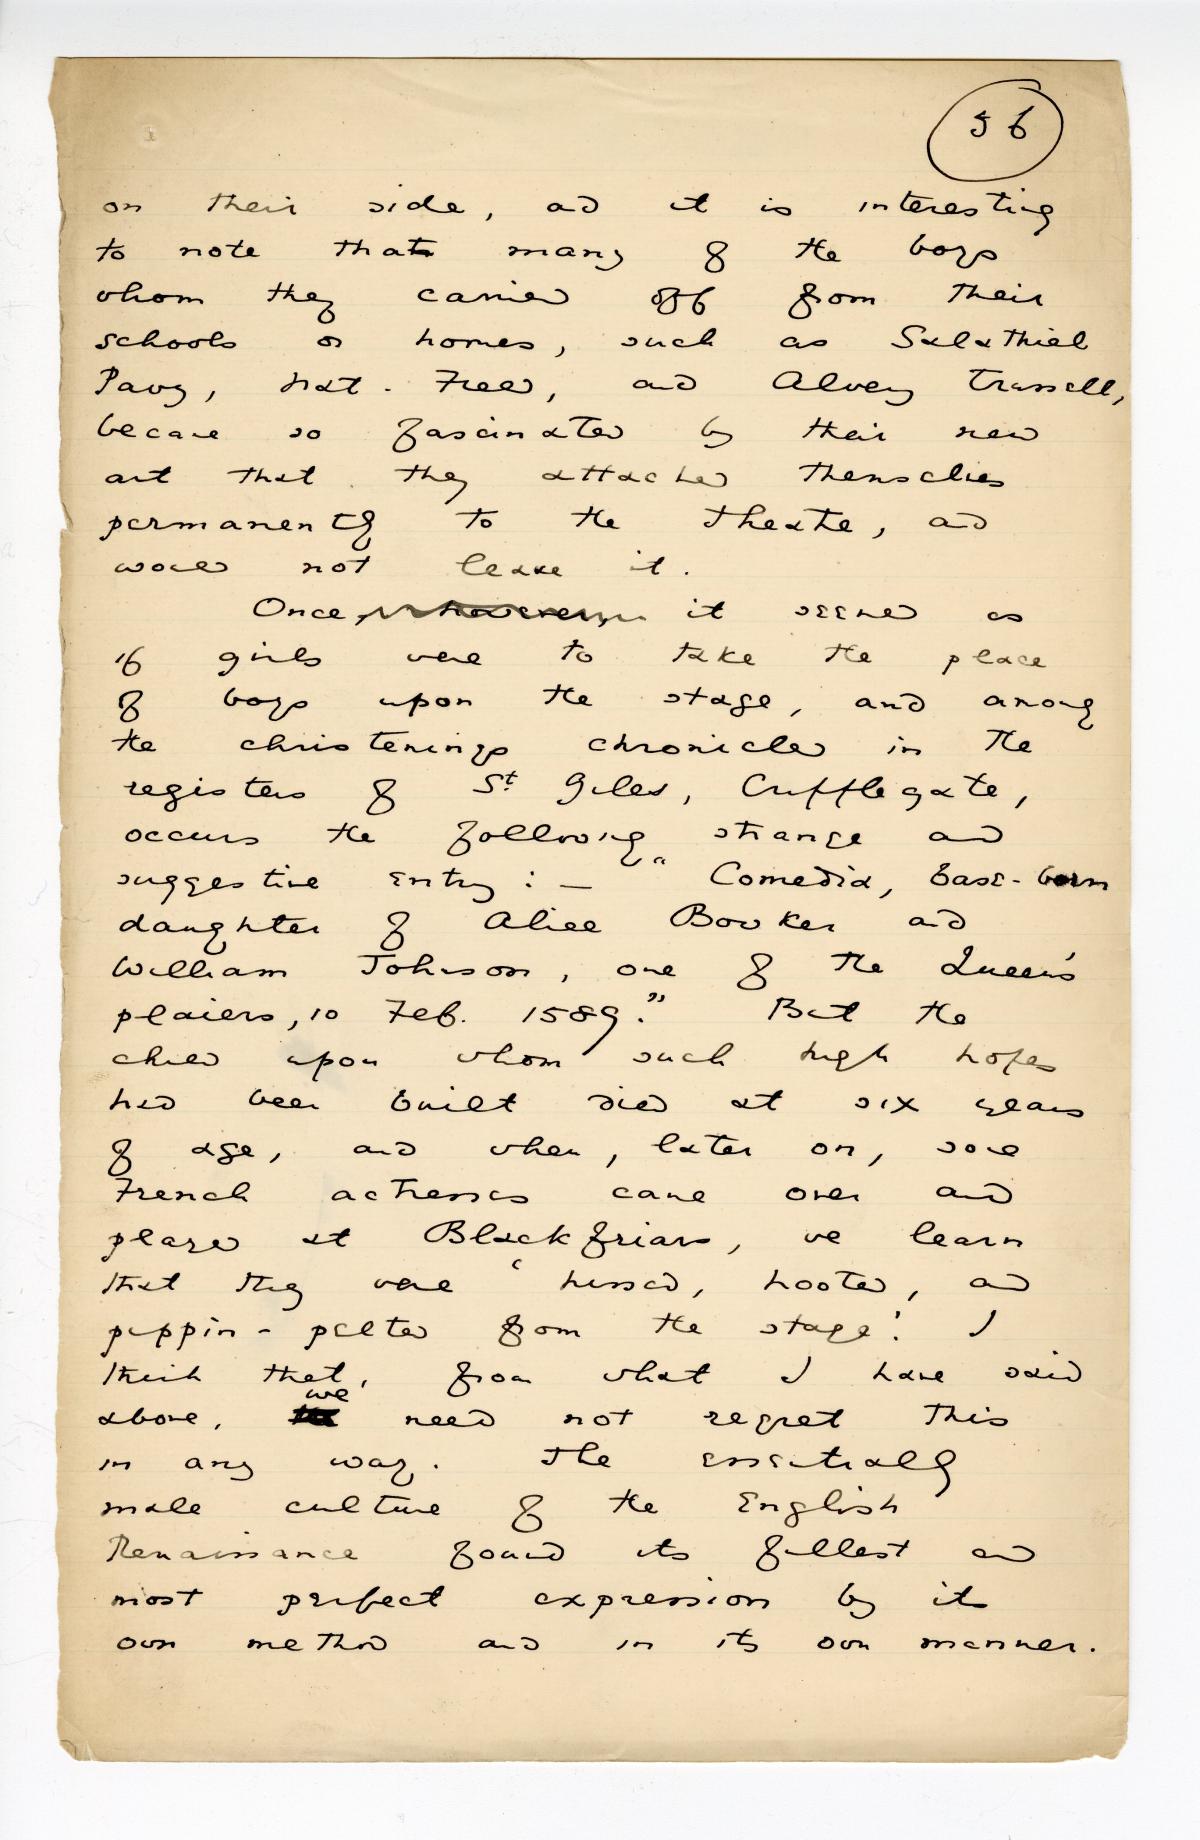 56
on their side, and it is interesting
to note that many of the boys
whom they carried off from their
schools or homes, such as Salathiel
Pavy, Nat. Field, and Alvery Trussell,
became so fascinated by their new
art that they attached themselves
permanently to the theatre, and
would not leave it.
Once, however, it seemed as
if girls were to take the place
of boys upon the stage, and among
the christenings chronicled in the
registers of St Giles, Cripplegate,
occurs the following strange and
suggestive entry: — "Comedia, base-born
daughter of Alice Bowker and
William Johnson, one of the Queen's
plaiers, 10 Feb. 1589." But the
child upon whom such high hopes
had been built died at six years
of age, and when, later on, some
French actresses came over and
played at Blackfriars, we learn
that they were 'hissed, hooted, and
pippin-pelted from the stage.' I
think that, from what I have said
above, we need not regret this
in any way. The essentially
male culture of the English
Renaissance found its fullest and
most perfect expression by its
own method and in its own manner.